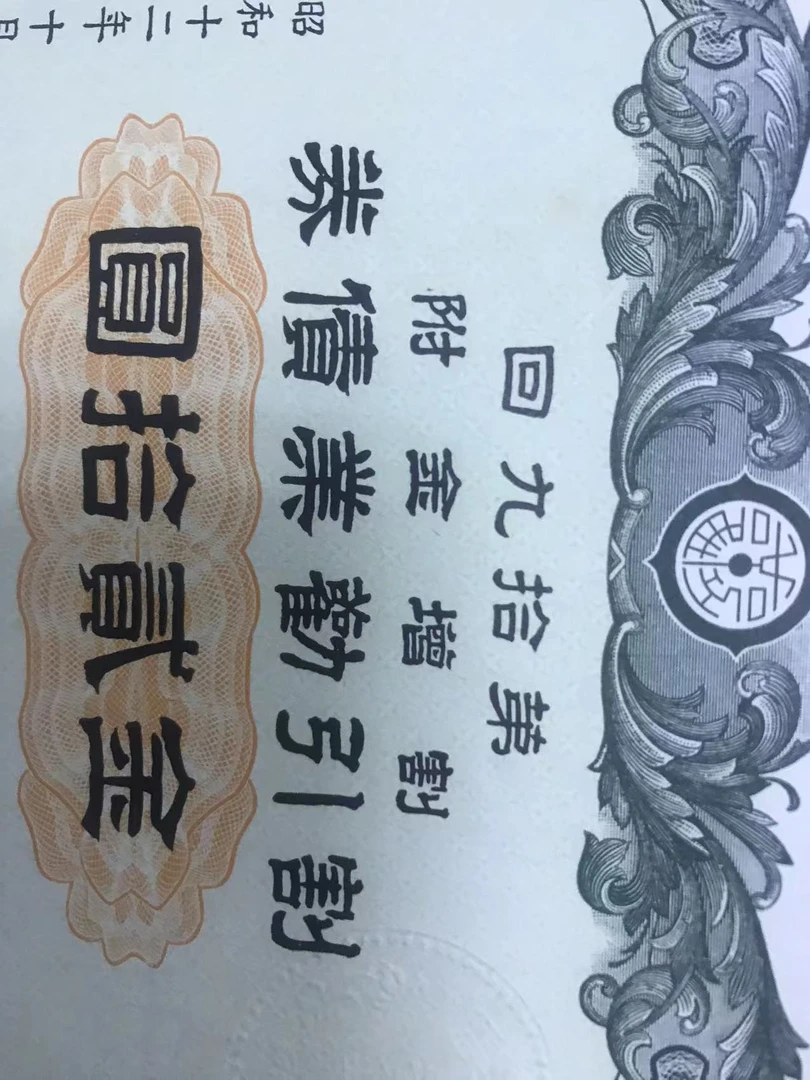 第拾九回
割増金附
割引勧業債券
金貳拾圓
昭和十二年十月